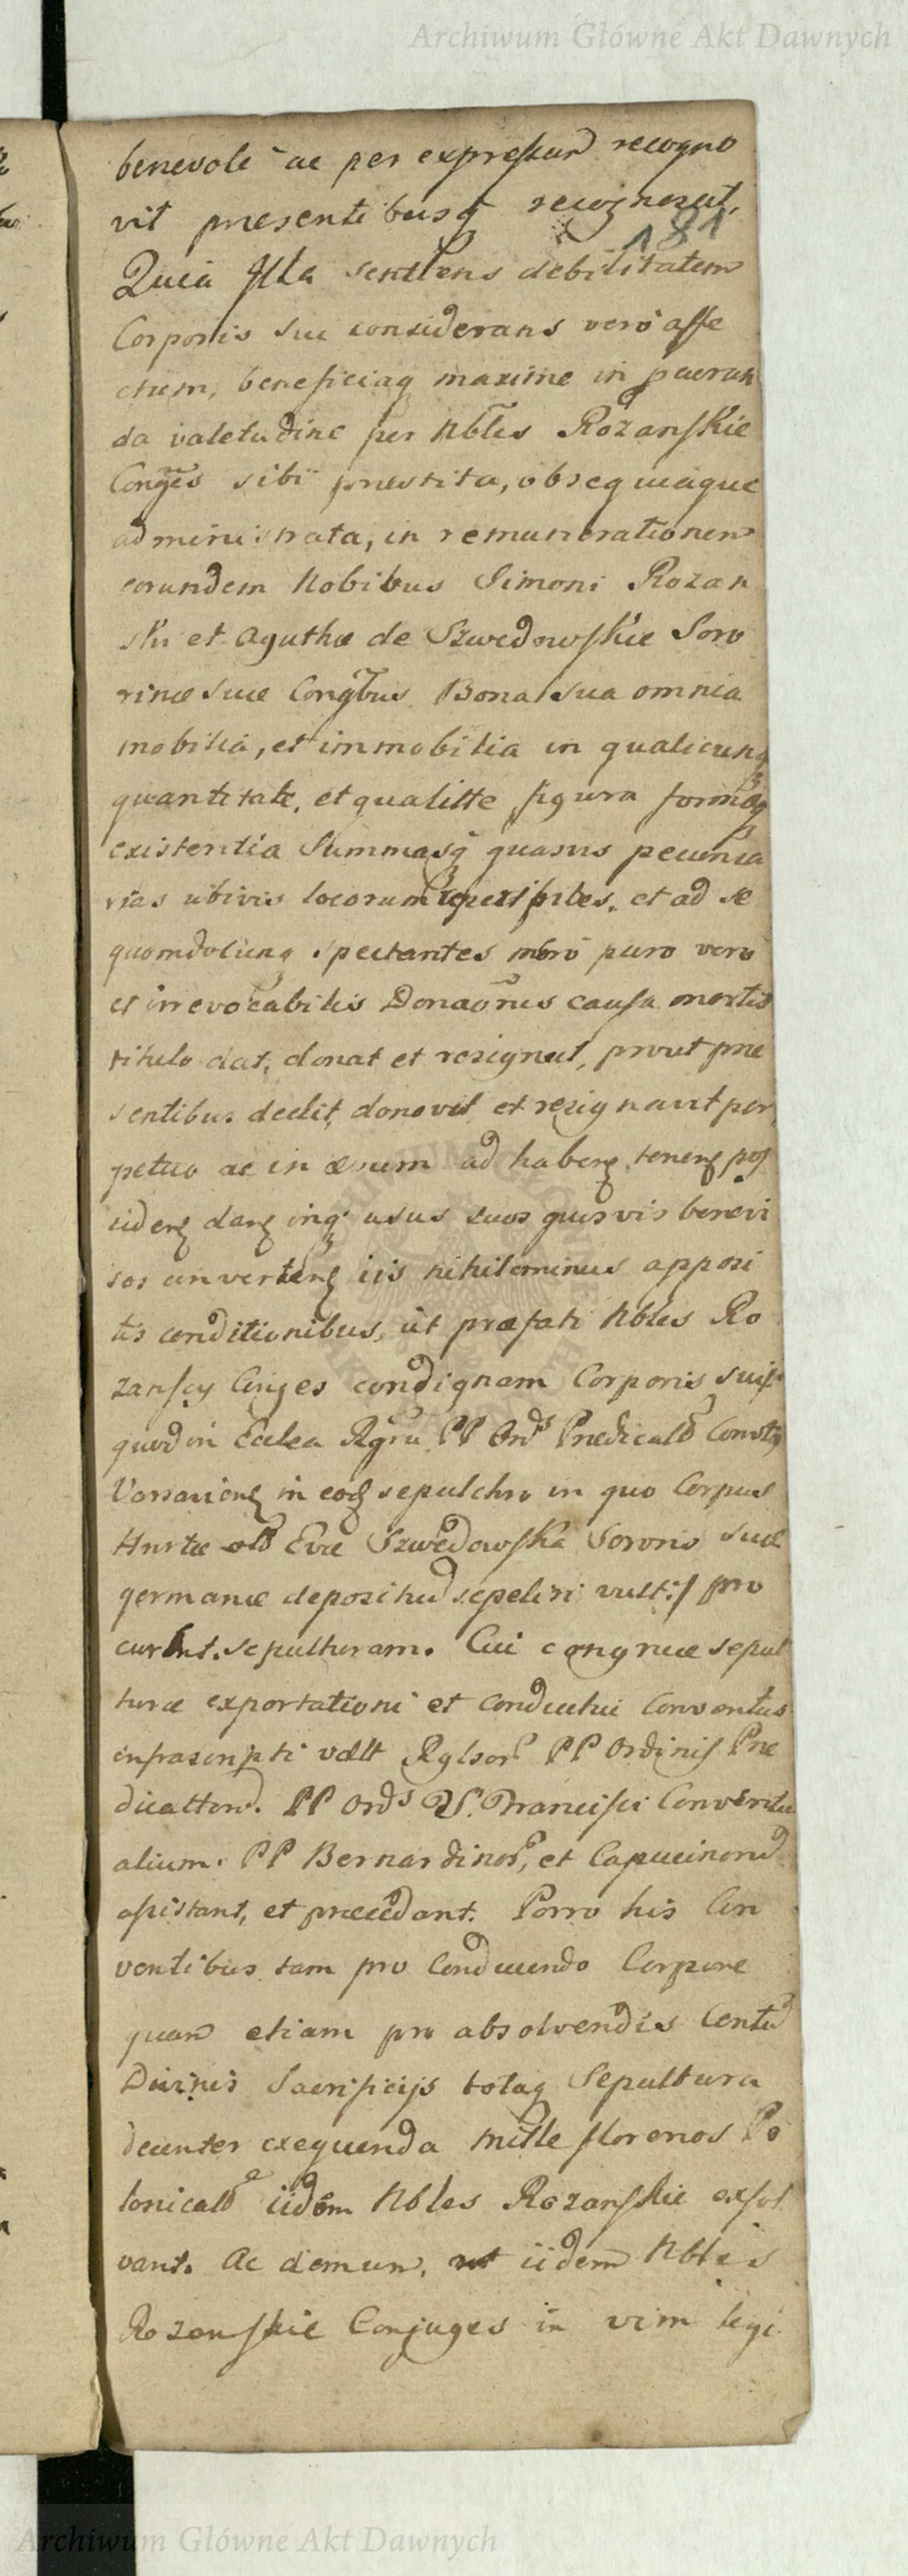 Archiwum Główne Akt Dawnych
benevole ac per expressum recogno
vit presentibusq recognoscit,
181
Quia Illa sentiens debilitatem
Corporis sui considerans vero affe
ctum, beneficiaq maxime in
da valetudine per Nbles Rożanskie
Conges sibi praestita, obsequiaque
administrata, in remunerationem
eorundem Nobibus Simoni Rozan
ski et Agathæ de Szwedowskie Soro
rinæ suæ Congbus Bona sua omnia
mobilia, et immobilia in qualicunq
quantitate, et qualitte figura formaq
existentia Summasq quasvis pecunia
rias ubivis locorum et ad se
quomdocunq spectantes mbro puro vero
et irrevocabilis Donaonis causa mortis
titulo dat, donat et resignat, prout præ
sentibus dedit, donavit et resignavit per
petuo ac in ævum ad habenq tenenq pos
sidenq danq inq usus suos quosvis benevi
sos convertenq iis nihilominus apposi
tis conditionibus, ut præfati Nbles Ro
zanscy Conges condignam Corporis sui
quod in Ecclea PP Ords Prædicato
Varsavienq in eoq sepulchro in quo Corpus
olb Evæ Szwedowska Sororis suæ
germanæ depositu sepeliri vult:/ pro
curent sepulturam. Cui congruæ sepul
turæ exportationi et conductui Conventus
infrascripti vult PP Ordinis Præ
dicattoru. PP Ords S. Francisci Conventu
alium. PP Bernardinor, et Capucinoru
assistant, et præcedant. Porro his Con
ventibus tam pro Conducendo Corpore
quam etiam pro absolvendis Centu
Divinis Sacrificijs totaq Sepultura
decenter exequenda mille florenos Po
lonicalb iidem Nbles Rozanskie exsol
vant. Ac demum, ut iidem Nbles
Rozanskie Conjuges in vim legi
Archiwum Główne Akt Dawnych